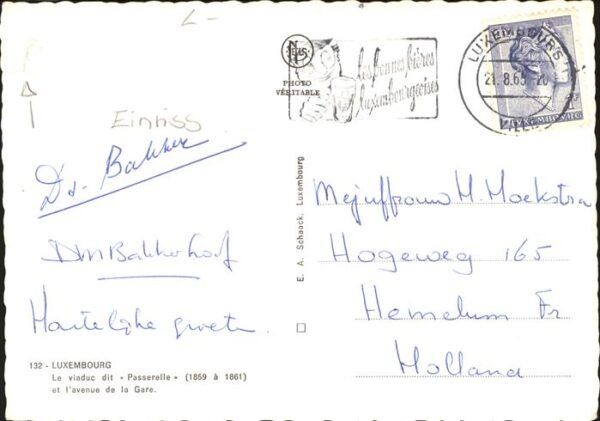 L-
Einriss
Dr. Bakker
DM Bakkerhof
Hartelijke groeten
132 - LUXEMBOURG
Le viaduc dit « Passerelle » (1859 à 1861)
et l'avenue de la Gare.
PHOTO
VÉRITABLE
E. A. Schaack, Luxembourg
les bonnes bières
luxembourgeoises
LUXEMBOURG
21.8.63
LUXEMBOURG
Mejuffrouw H. Hoekstra
Hogeweg 165
Hemelum Fr
Holland